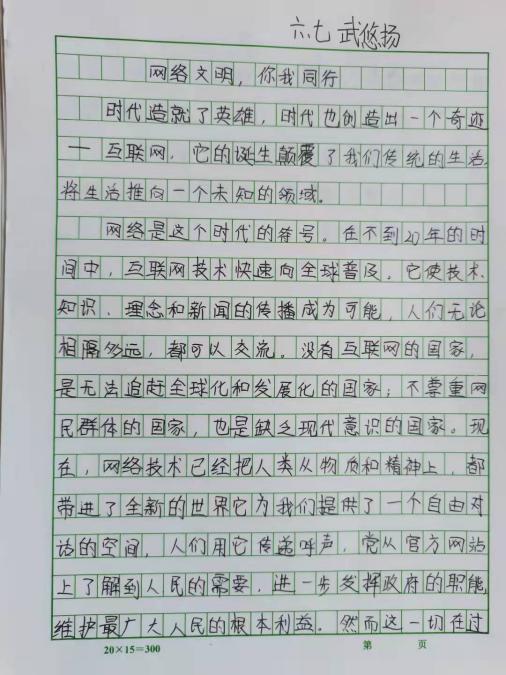 六.七 武悠扬
网络文明，你我同行
时代造就了英雄，时代也创造出一个奇迹
一互联网，它的诞生颠覆了我们传统的生活，
将生活推向一个未知的领域。
网络是这个时代的符号。在不到20年的时
间中，互联网技术快速向全球普及，它使技术、
知识、理念和新闻的传播成为可能，人们无论
相隔多远，都可以交流。没有互联网的国家，
是无法追赶全球化和发展化的国家；不尊重网
民群体的国家，也是缺乏现代意识的国家。现
在，网络技术已经把人类从物质和精神上，都
带进了全新的世界它为我们提供了一个自由对
话的空间，人们用它传递呼声，党从官方网站
上了解到人民的需要，进一步发挥政府的职能，
维护最广大人民的根本利益。然而这一切在过
20×15=300 第 页